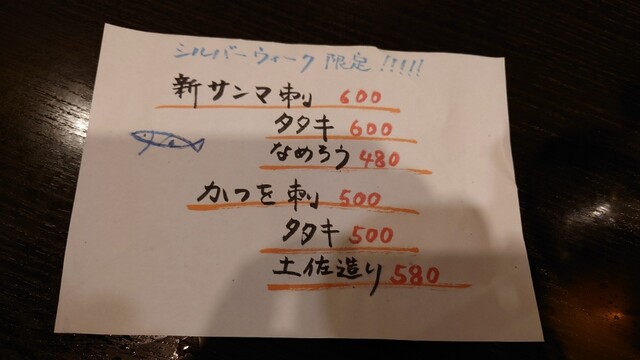 シルバーウィーク 限定 !!!!!
新サンマ刺 600
タタキ 600
なめろう 480
かつを刺 500
タタキ 500
土佐造り 580